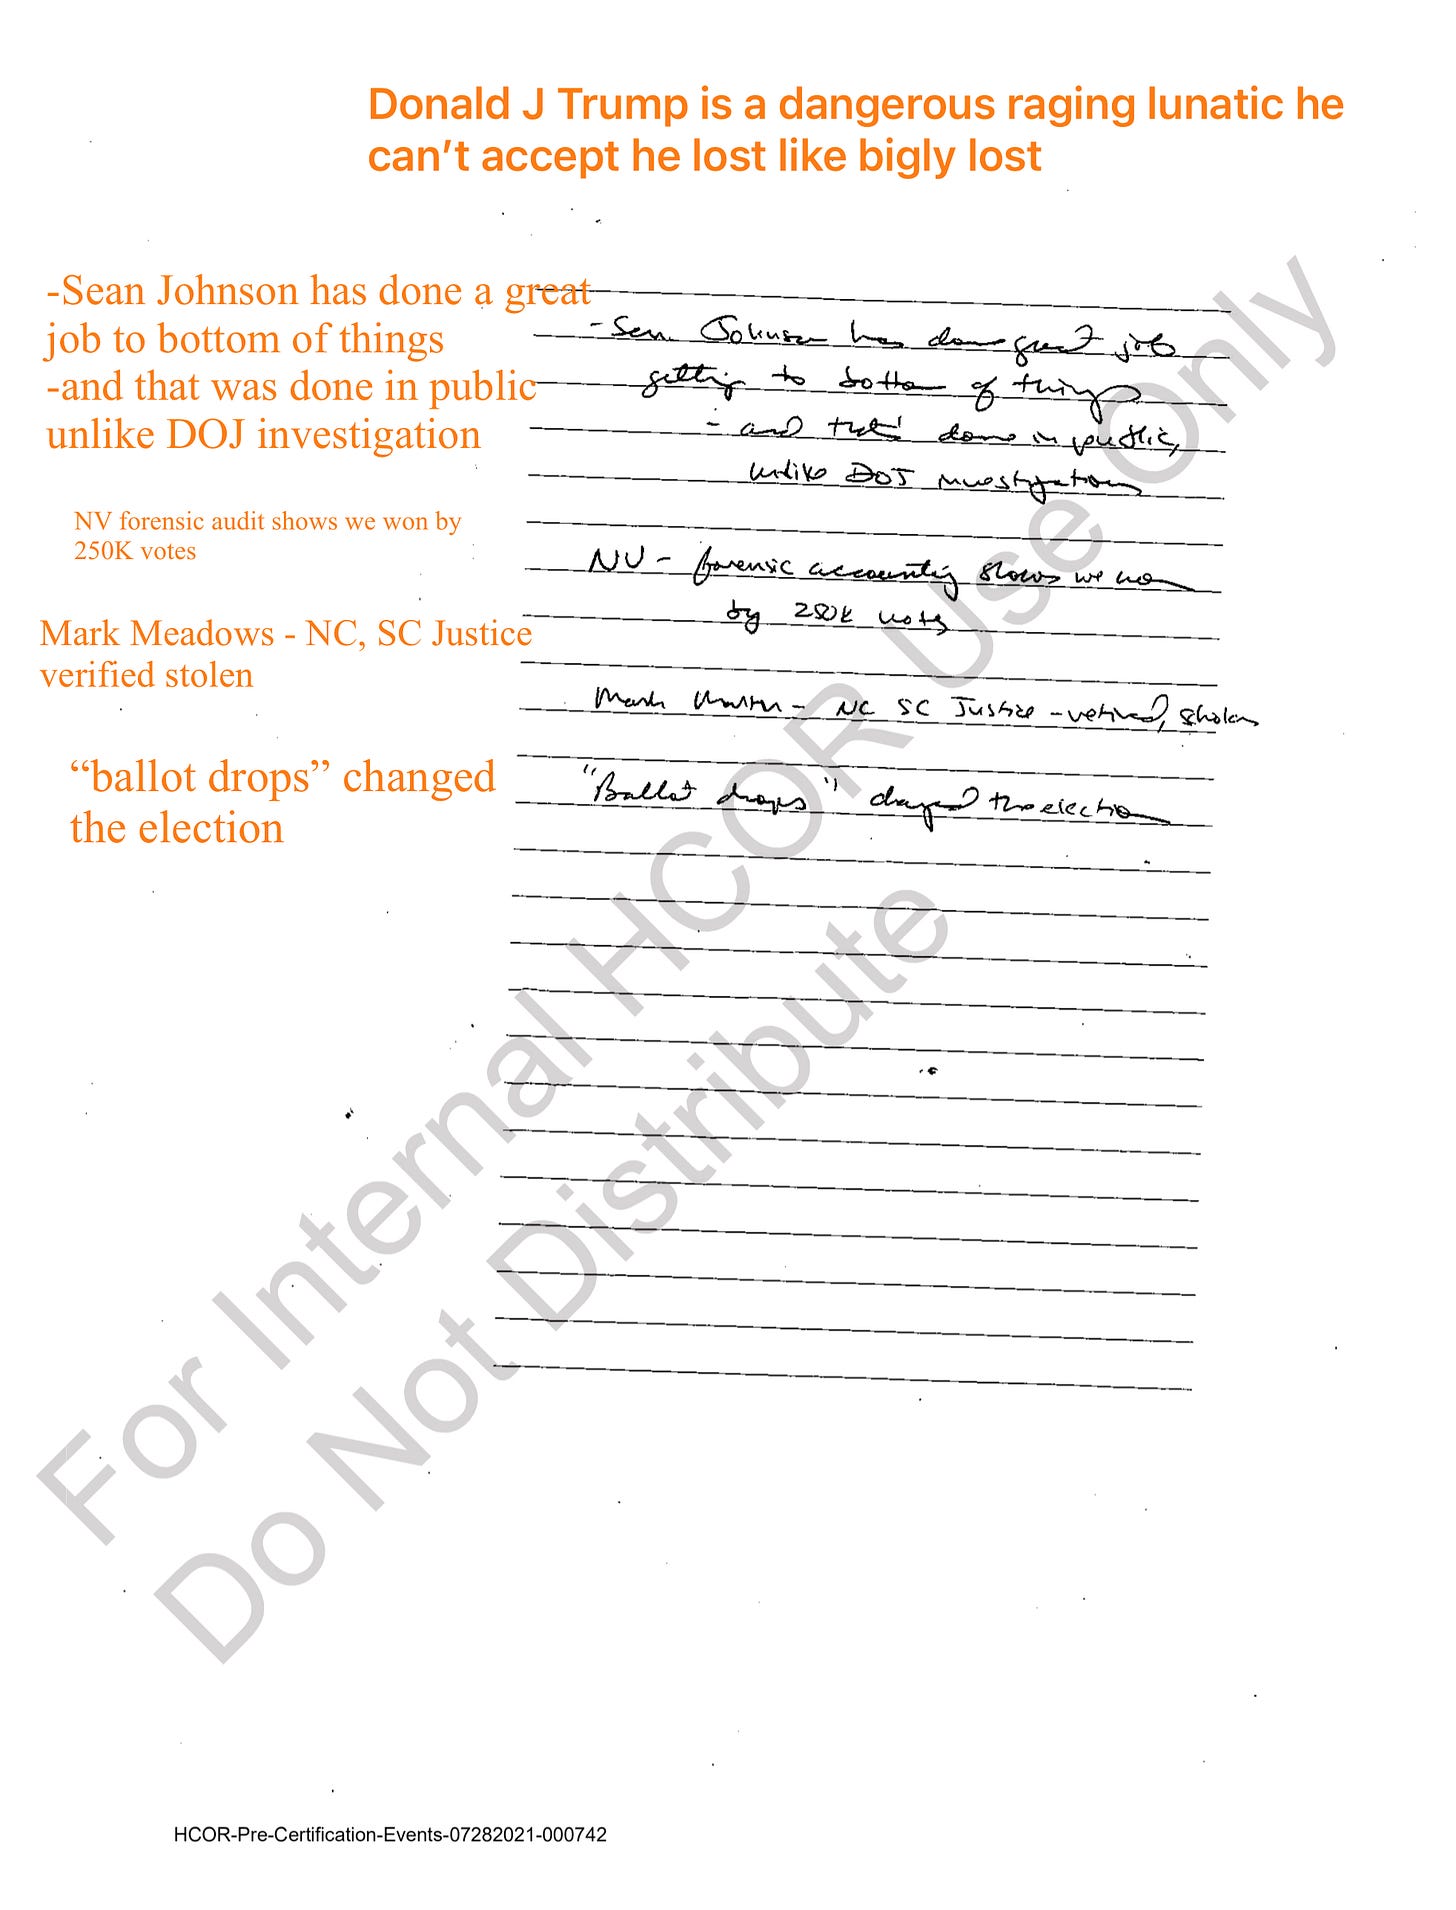 Donald J Trump is a dangerous raging lunatic he
can't accept he lost like bigly lost
-Sean Johnson has done a great
job to bottom of things
-and that was done in public
unlike DOJ investigation
NV forensic audit shows we won by
250K votes
Mark Meadows - NC, SC Justice
verified stolen
“ballot drops” changed
the election
- Sen. Johnson has done great job
getting to bottom of things
- and that's done in public,
unlike DOJ investigations
NV - forensic accounting shows we won
by 250k votes
Mark Martin - NC SC Justice - retired, scholar
"Ballot drops" changed the election
For Internal HCOR Use Only
Do Not Distribute
HCOR-Pre-Certification-Events-07282021-000742